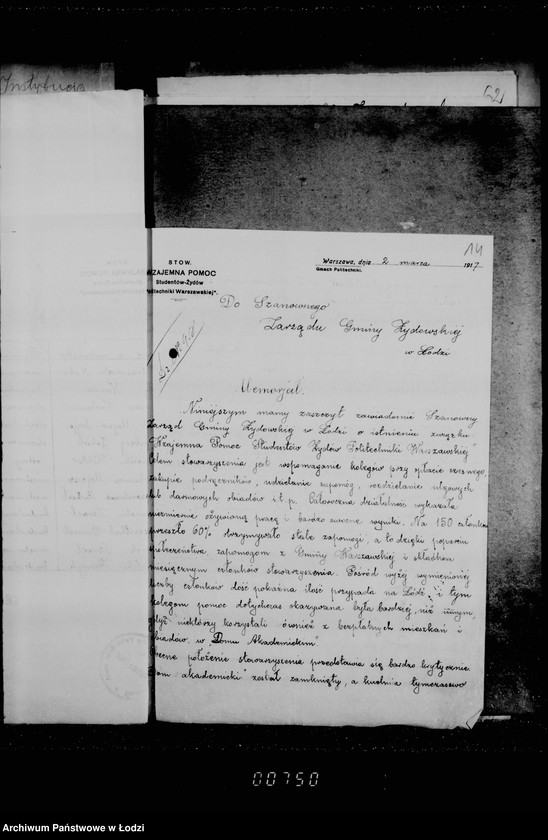 Instytucja
62
14
STOW.
WZAJEMNA POMOC
Studentów-Żydów
Politechniki Warszawskiej".
Warszawa, dnia 2 marca 1917
Gmach Politechniki.
Do Szanownego
Zarządu Gminy Żydowskiej
w Łodzi
Memorjał.
Niniejszym mamy zaszczyt zawiadomić Szanowny
Zarząd Gminy Żydowskiej w Łodzi o istnieniu związku
Wzajemna Pomoc Studentów Żydów Politechniki Warszawskiej
Celem stowarzyszenia jest wspomaganie kolegów przy opłacie czesnego,
zakupie podręczników, udzielanie zapomóg, rozdzielanie ulgowych
lub darmowych obiadów i t. p. Całoroczna działalność wykazała
niezmiernie ożywioną pracę i bardzo owocne wyniki. Na 150 członków
przeszło 60% otrzymywało stałe zapomogi, a to dzięki poparciu
społeczeństwa zapomogom z Gminy Warszawskiej i składkom
miesięcznym członków stowarzyszenia. Pośród wyżej wymienionej
liczby członków dość pokaźna ilość przypada na Łódź i tym
kolegom pomoc dotychczas okazywana była bardziej, niż innym,
gdyż niektórzy korzystali również z bezpłatnych mieszkań i
obiadów w "Domu Akademickim"
Obecne położenie stowarzyszenia przedstawia się bardzo krytycznie
Dom akademicki" został zamknięty, a kuchnia tymczasowo
00750
Archiwum Państwowe w Łodzi